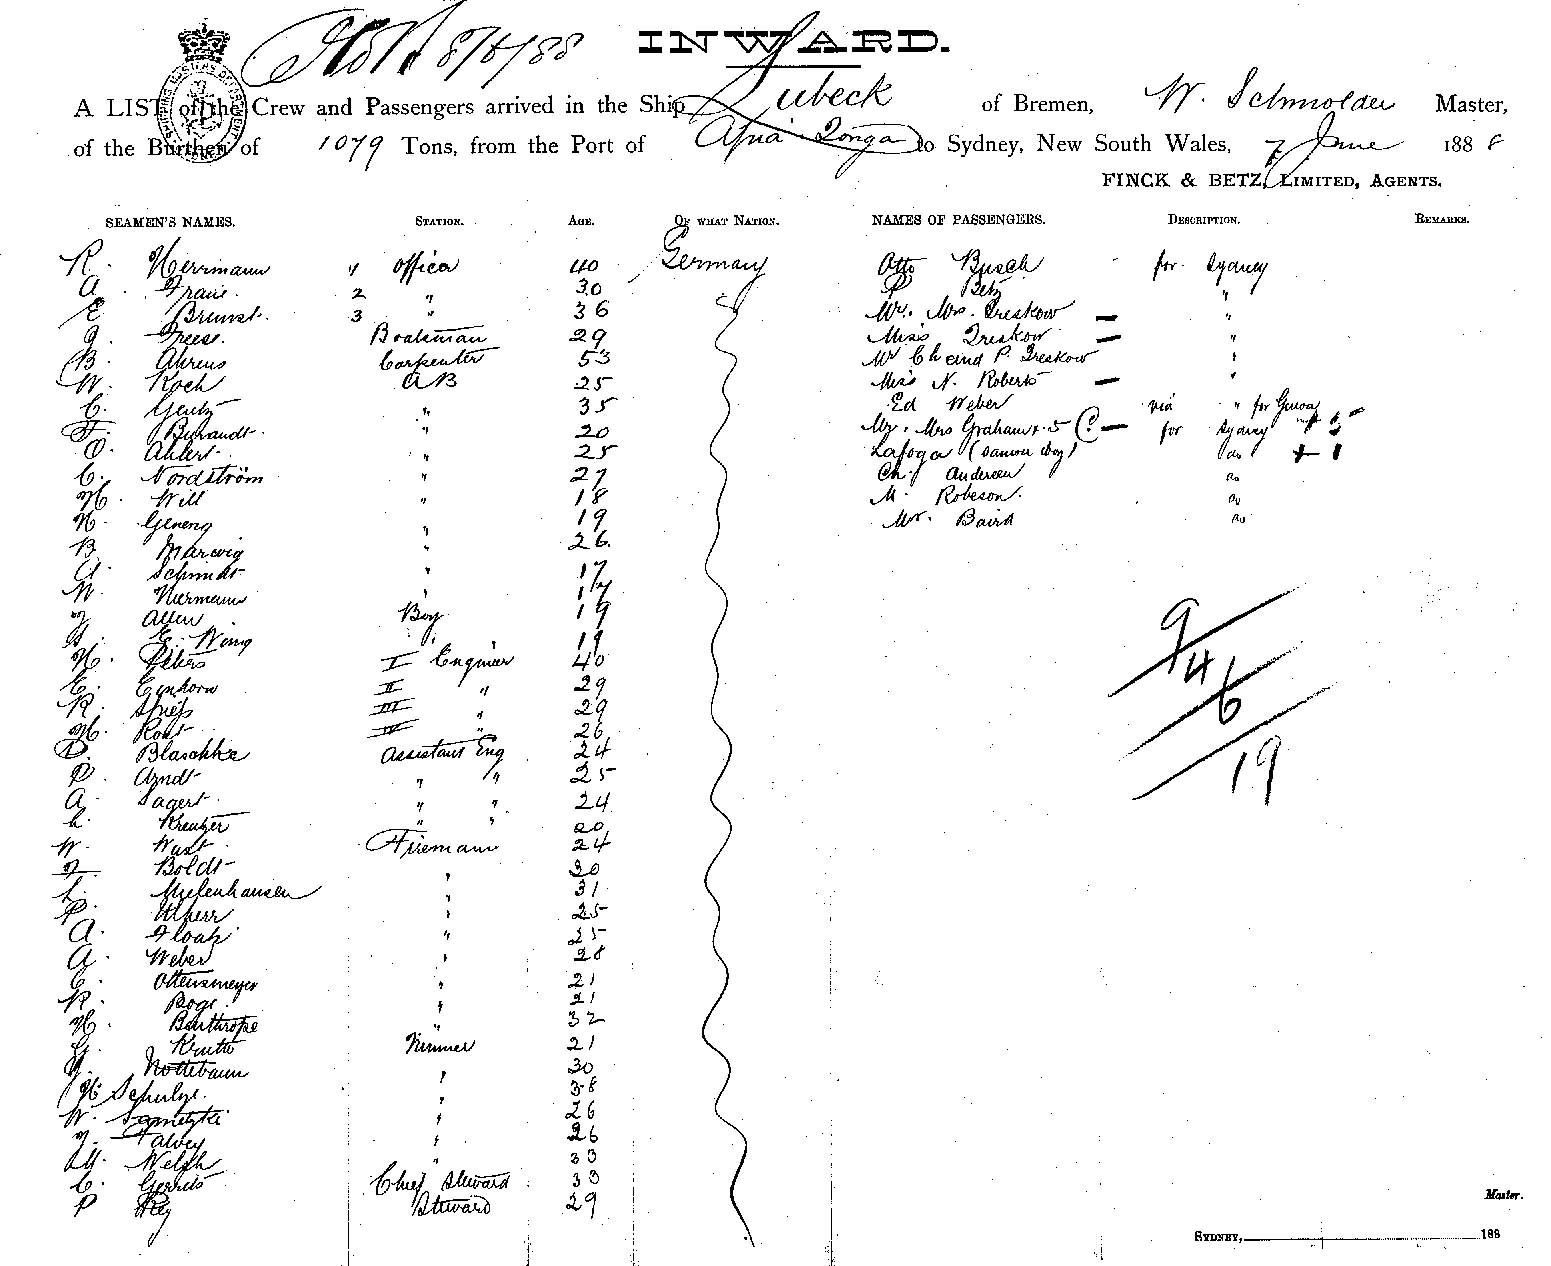 8/6/88 INWARD.
A LIST of the Crew and Passengers arrived in the Ship Lubeck of Bremen, W. Schmolder Master,
of the Burthen of 1079 Tons, from the Port of Apia Tonga to Sydney, New South Wales, 7 June 1888
FINCK & BETZ, LIMITED, AGENTS.
SEAMEN'S NAMES. STATION. AGE. OF WHAT NATION. NAMES OF PASSENGERS. DESCRIPTION. REMARKS.
R. Herrmann " Officer 40 Germany Otto Busch for Sydney
A. 2 " 30 P Betz "
E Brunst. 3 " 36 Mr. Mrs. Treskow — "
J. Freese. Boatsman 29 Miss Treskow — "
B. Ahrens Carpenter 53 Mr Ch and P. Treskow "
W. Koch AB 25 Miss N. Roberts — "
C. Gentz " 35 Ed Weber via " for Genoa
F. Burandt. " 20 Mr. Mrs Graham + 5 C. — for Sydney + 5
O. Ahlert. " 25 Lafoga (Samoa Boy) do + 1
C. Nordström " 27 Ch. Andersen do
H. Will " 18 M. Robeson. do
H. Geneng " 19 Mr. Baird do
B. Marwig " 26
A. Schmidt " 17
W. Niemann " 17
J. Allen Boy 19
E. Wing " 19
H. Peters I Engineer 40
E. Einhorn II " 29
R. Spiess III " 29
H. Rost IV " 26
D. Blaschke Assistant Eng 24
P. Arndt " " 25
A. Sagert " " 24
L. Kreutzer " " 20
W. Wust Fireman 24
F. Boldt " 30
L. Mielenhausen " 31
P. Ulherr " 25
A. Floatz " 25
A. Weber " 28
C. Ottensmeyer " 21
R. Boge. " 21
H. Barthrope " 32
G. Knuth Trimmer 21
J. Nottebaum " 30
H. Schulze. " 38
W. " 26
J. Falvey " 26
M. Welsh " 33
C. Gerrets Chief Steward 33
P Rey Steward 29
9
4
6
19
Master.
SYDNEY, 188